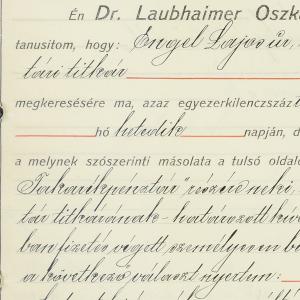 Én Dr. Laubhaimer Oszká
tanusitom, hogy: Engel Lajos úr,
tári titkár
megkeresésére ma, azaz egyezerkilenczszázt
hó hetedik napján, d
a melynek szószerinti másolata a tulsó oldalo
Takarékpénztár" részére neki,
tár titkárának - határozott kíve
ban fizetés végett személyesen be
a következő választ nyertem: